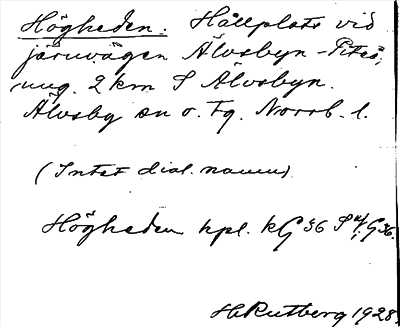 Högheden. Hållplats vid
järnvägen Älvsbyn-Piteå,
ung. 2 km S Älvsbyn.
Älvsby sn o. tg. Norrb. l.
(Intet dial. namn)
Högheden hpl. kG 36 S
H. Rutberg 1928.